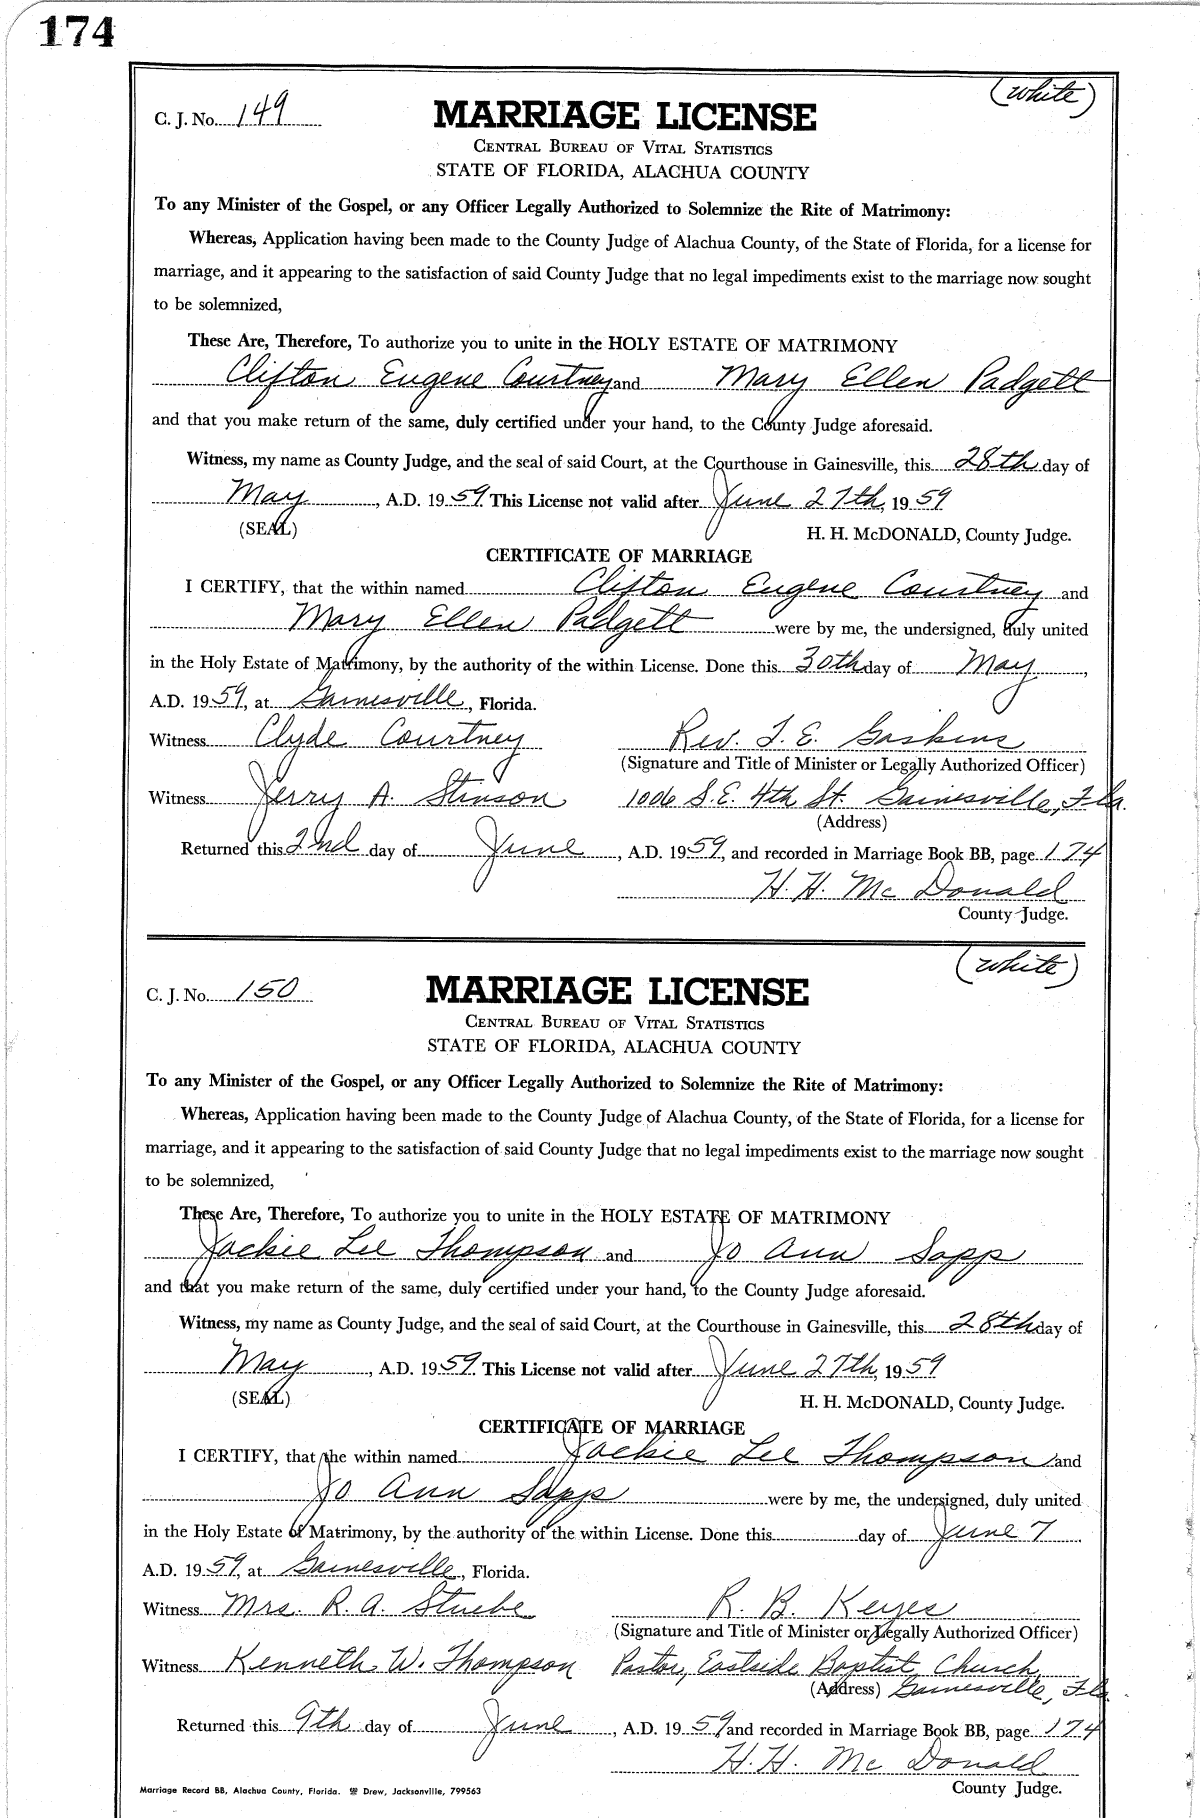 174
(white)
C. J. No. 149
MARRIAGE LICENSE
CENTRAL BUREAU OF VITAL STATISTICS
STATE OF FLORIDA, ALACHUA COUNTY
To any Minister of the Gospel, or any Officer Legally Authorized to Solemnize the Rite of Matrimony:
Whereas, Application having been made to the County Judge of Alachua County, of the State of Florida, for a license for
marriage, and it appearing to the satisfaction of said County Judge that no legal impediments exist to the marriage now sought
to be solemnized,
These Are, Therefore, To authorize you to unite in the HOLY ESTATE OF MATRIMONY
Clifton Eugene Courtney and Mary Ellen Padgett
and that you make return of the same, duly certified under your hand, to the County Judge aforesaid.
Witness, my name as County Judge, and the seal of said Court, at the Courthouse in Gainesville, this 28th day of
May, A.D. 1959. This License not valid after June 27th, 1959
(SEAL) H. H. McDONALD, County Judge.
CERTIFICATE OF MARRIAGE
I CERTIFY, that the within named Clifton Eugene Courtney and
Mary Ellen Padgett were by me, the undersigned, duly united
in the Holy Estate of Matrimony, by the authority of the within License. Done this 30th day of May,
A.D. 1959, at Gainesville, Florida.
Witness Clyde Courtney Rev. T. E. Gaskins
(Signature and Title of Minister or Legally Authorized Officer)
Witness Jerry A. Stinson 1006 S.E. 4th St. Gainesville, Fla.
(Address)
Returned this 2nd day of June, A.D. 1959, and recorded in Marriage Book BB, page 174
H. H. Mc Donald
County Judge.
(white)
C. J. No. 150
MARRIAGE LICENSE
CENTRAL BUREAU OF VITAL STATISTICS
STATE OF FLORIDA, ALACHUA COUNTY
To any Minister of the Gospel, or any Officer Legally Authorized to Solemnize the Rite of Matrimony:
Whereas, Application having been made to the County Judge of Alachua County, of the State of Florida, for a license for
marriage, and it appearing to the satisfaction of said County Judge that no legal impediments exist to the marriage now sought
to be solemnized,
These Are, Therefore, To authorize you to unite in the HOLY ESTATE OF MATRIMONY
Jackie Lee Thompson and Jo Ann Sapp
and that you make return of the same, duly certified under your hand, to the County Judge aforesaid.
Witness, my name as County Judge, and the seal of said Court, at the Courthouse in Gainesville, this 28th day of
May, A.D. 1959. This License not valid after June 27th, 1959
(SEAL) H. H. McDONALD, County Judge.
CERTIFICATE OF MARRIAGE
I CERTIFY, that the within named Jackie Lee Thompson and
Jo Ann Sapp were by me, the undersigned, duly united
in the Holy Estate of Matrimony, by the authority of the within License. Done this day of June 7
A.D. 1959, at Gainesville, Florida.
Witness Mrs. R. A. Stuebe R. B. Keyes
(Signature and Title of Minister or Legally Authorized Officer)
Witness Kenneth W. Thompson Pastor, Eastside Baptist Church,
(Address) Gainesville, Fla.
Returned this 9th day of June, A.D. 1959 and recorded in Marriage Book BB, page 174
H. H. Mc Donald
County Judge.
Marriage Record BB, Alachua County, Florida. Drew, Jacksonville, 799563